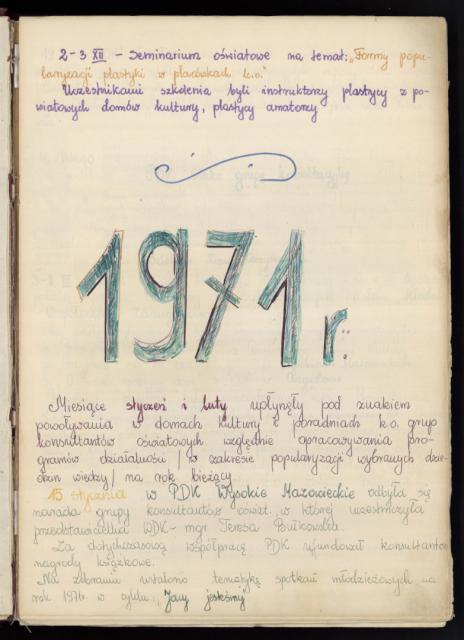 2-3 XII - Seminarium oświatowe na temat: „Formy popu-
laryzacji plastyki w placówkach k.o."
Uczestnikami szkolenia byli instruktorzy plastycy z po-
wiatowych domów kultury, plastycy amatorzy
1971 r.
Miesiące styczeń i luty upłynęły pod znakiem
powoływania w domach kultury i poradniach k.o. grup
konsultantów oświatowych względnie opracowywania pro-
gramów działalności /w zakresie popularyzacji wybranych dzie-
dzin wiedzy/ na rok bieżący.
15 stycznia w PDK Wysokie Mazowieckie odbyła się
narada grupy konsultantów oświat. w której uczestniczyła
przedstawicielka WDK - mgr Teresa
Za dotychczasową współpracę PDK ufundował konsultantom
nagrody książkowe.
Na zebraniu ustalono tematykę spotkań młodzieżowych na
rok 1971 w cyklu „Jacy jesteśmy